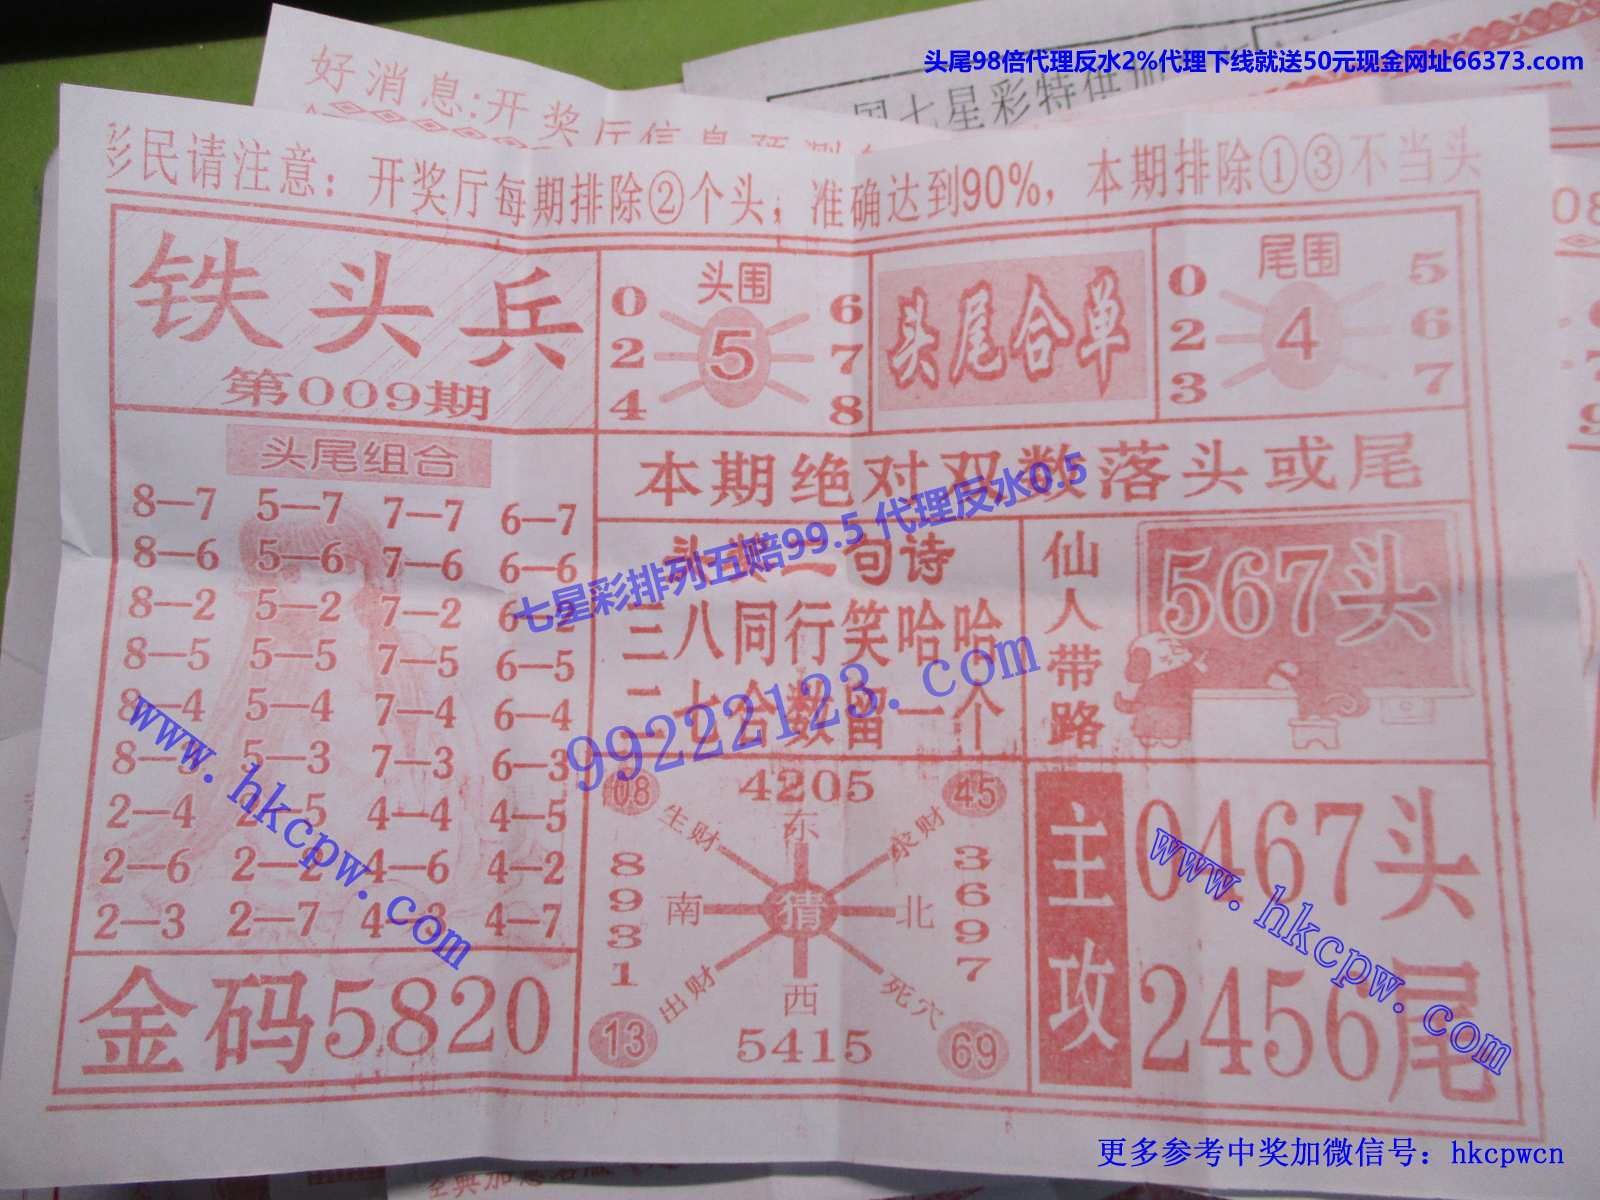 头尾98倍代理反水2%代理下线就送50元现金网址66373.com
好消息:开奖厅信息预测
国七星彩特供
彩民请注意：开奖厅每期排除②个头，准确达到90%，本期排除①③不当头
铁头兵
第009期
头围
0 6
2 5 7
4 8
头尾合单
尾围
0 5
2 4 6
3 7
头尾组合
8—7 5—7 7—7 6—7
8—6 5—6 7—6 6—6
8—2 5—2 7—2 6—2
8—5 5—5 7—5 6—5
8—4 5—4 7—4 6—4
8—3 5—3 7—3 6—3
2—4 2—5 4—4 4—5
2—6 2—2 4—6 4—2
2—3 2—7 4—3 4—7
金码5820
本期绝对双数落头或尾
七星彩排列五赔99.5 代理反水0.5
二句诗
三八同行笑哈哈
二七合数留一个
99222123.com
仙人带路
567头
08 4205 45
生财 东 求财
8931
南 猜 北
3697
出财 西 死穴
13 5415 69
主攻
0467头
2456尾
www.hkcpw.com
www.hkcpw.com
更多参考中奖加微信号：hkcpwcn